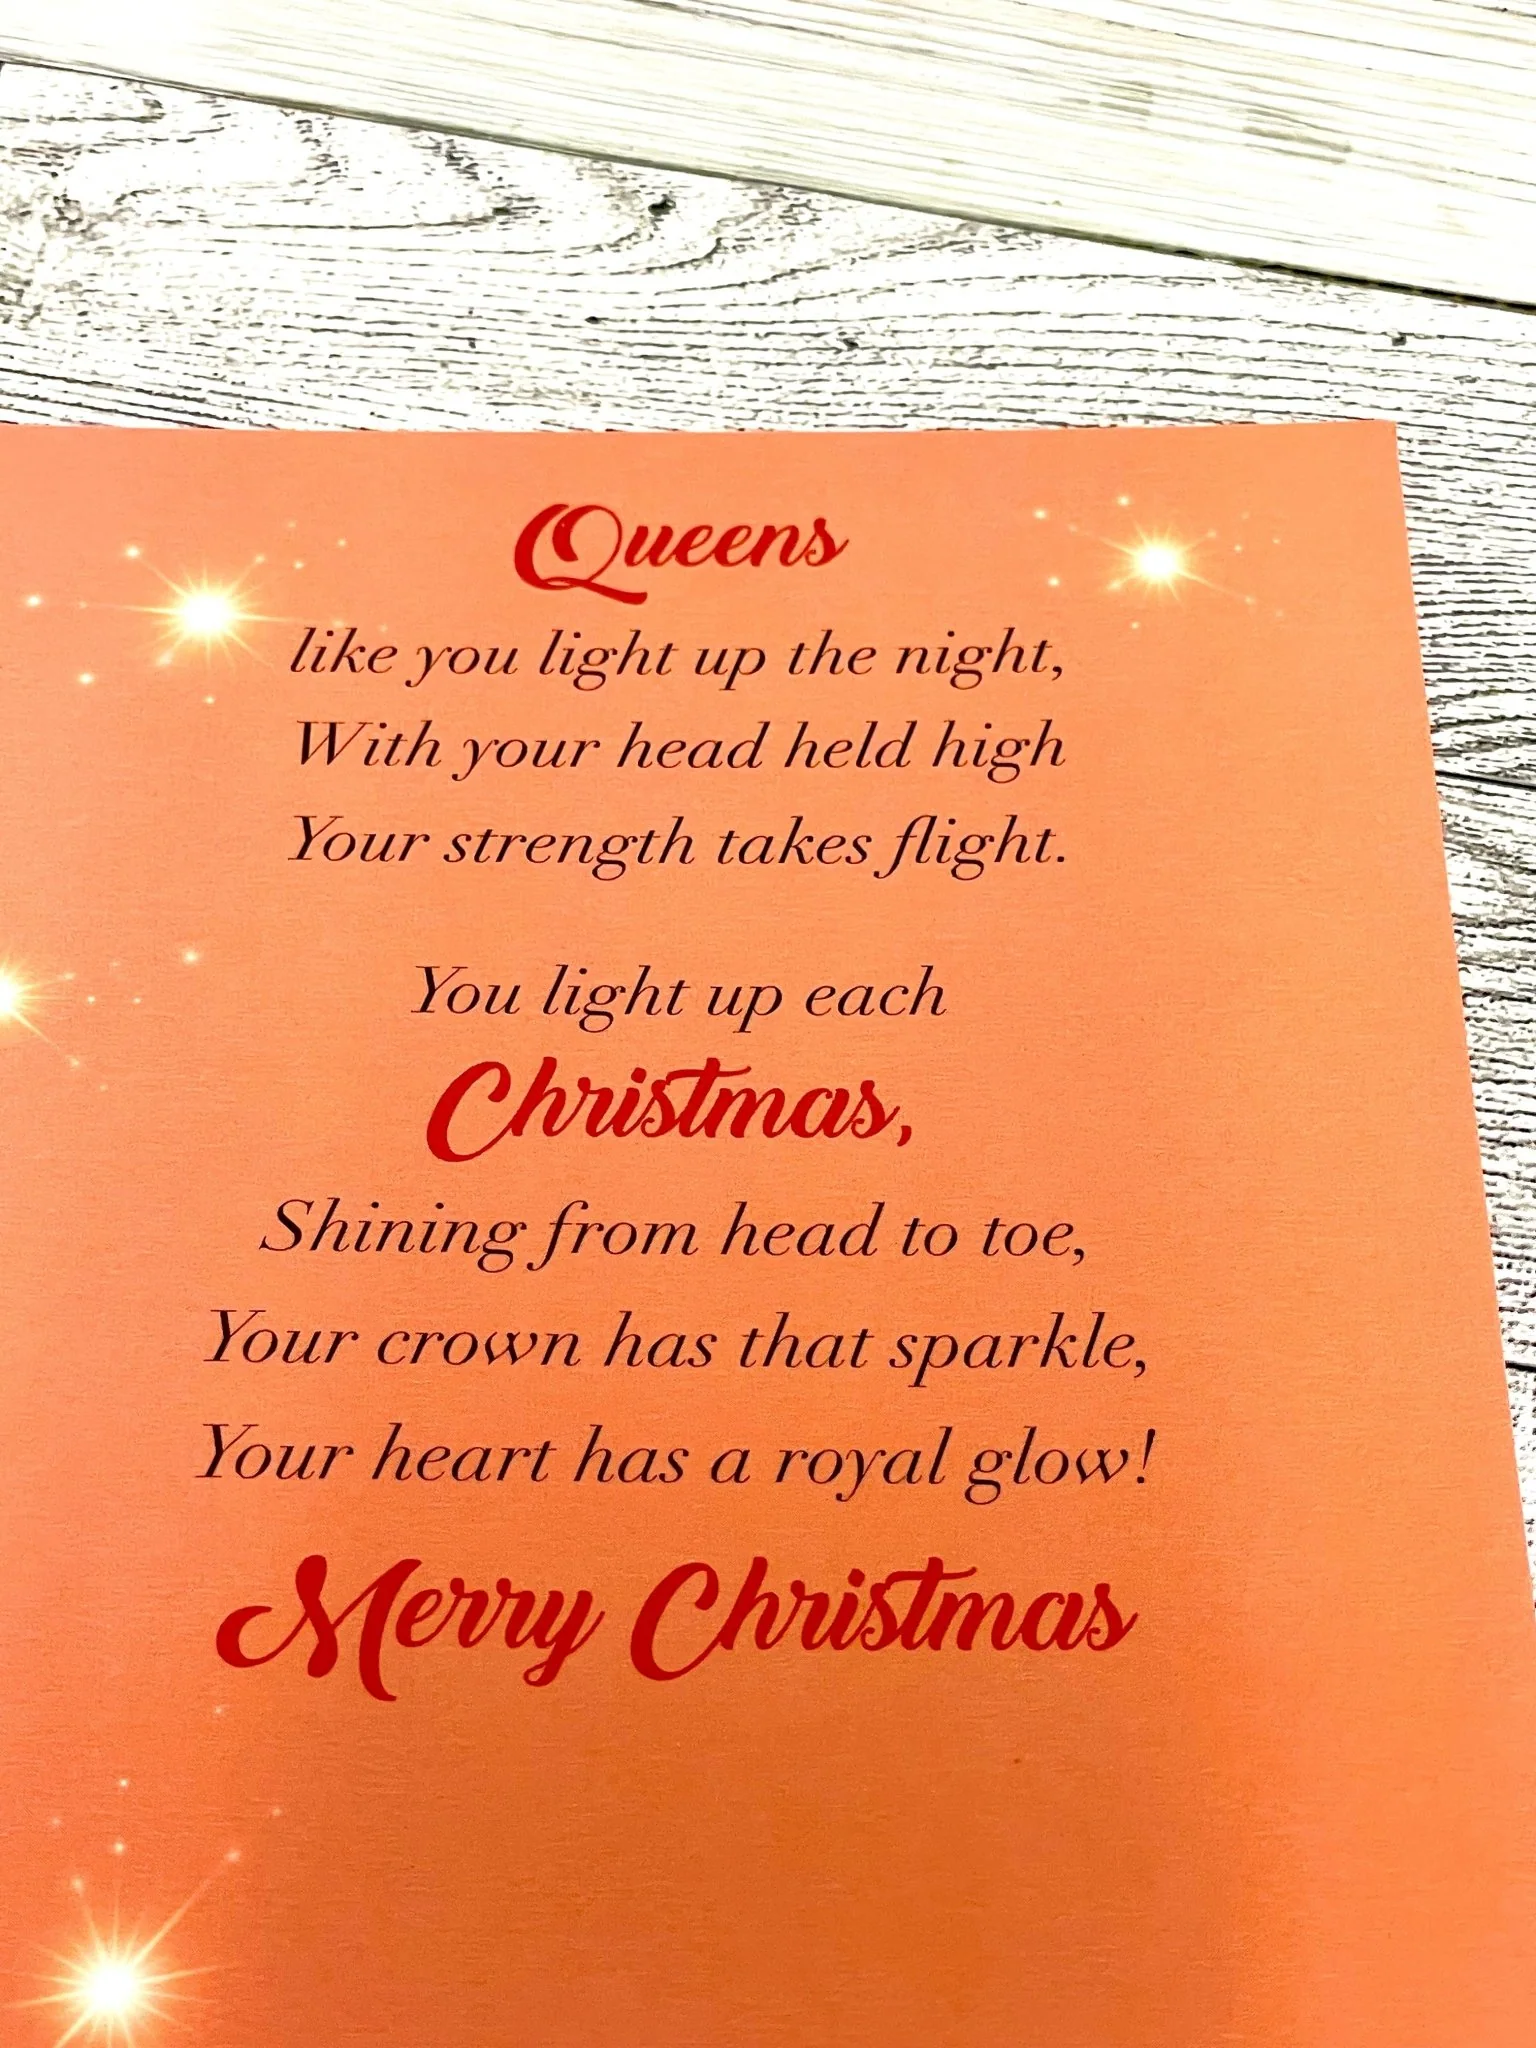 Queens
like you light up the night,
With your head held high
Your strength takes flight.
You light up each
Christmas,
Shining from head to toe,
Your crown has that sparkle,
Your heart has a royal glow!
Merry Christmas